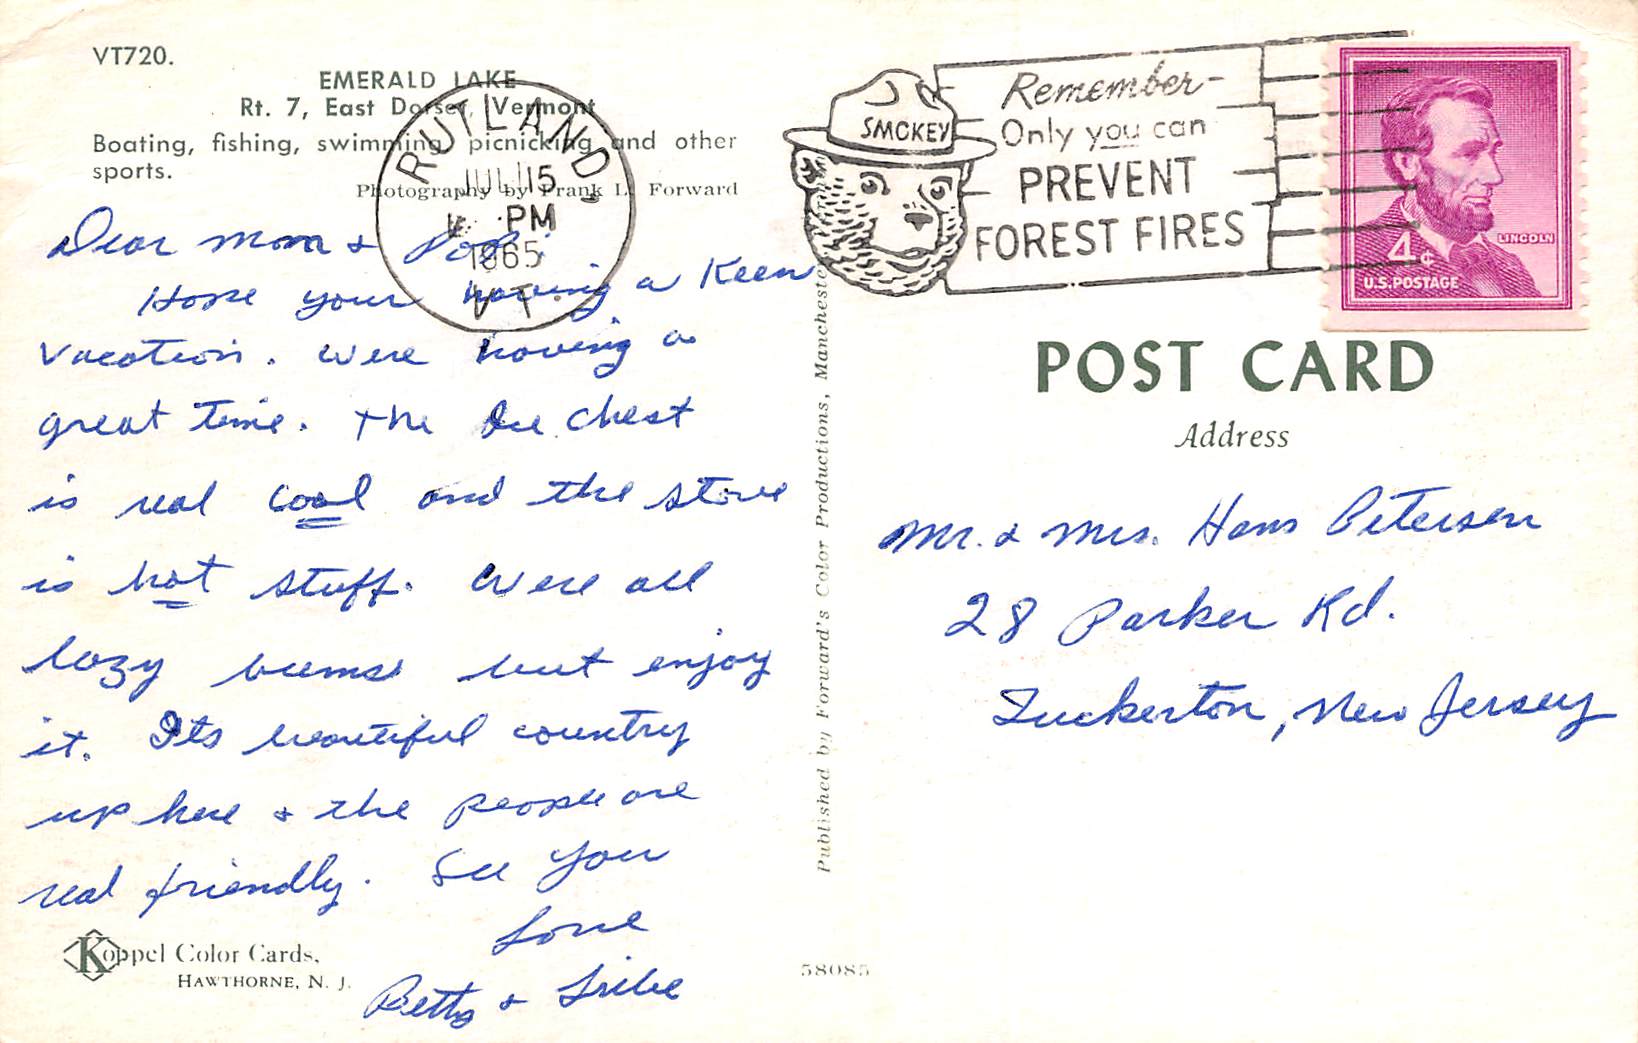 VT720.
EMERALD LAKE
Rt. 7, East Dorset, Vermont
Boating, fishing, swimming, picnicking and other
sports.
Photography by Frank L. Forward
RUTLAND,
JUL 15
PM
1965
VT.
SMOKEY
Remember-
Only you can
PREVENT
FOREST FIRES
4¢
LINCOLN
U.S. POSTAGE
Dear Mom & Pop:
Hope your having a Keen
vacation. Were having a
great time. The Ice chest
is real cool and the stove
is hot stuff. Were all
lazy bums but enjoy
it. Its beautiful country
up here & the people are
real friendly. See you
Love
Betty & Tribe
Koppel Color Cards,
HAWTHORNE, N. J.
58085
Published by Forward's Color Productions, Manchester
POST CARD
Address
Mr. & Mrs. Hans Petersen
28 Parker Rd.
Tuckerton, New Jersey